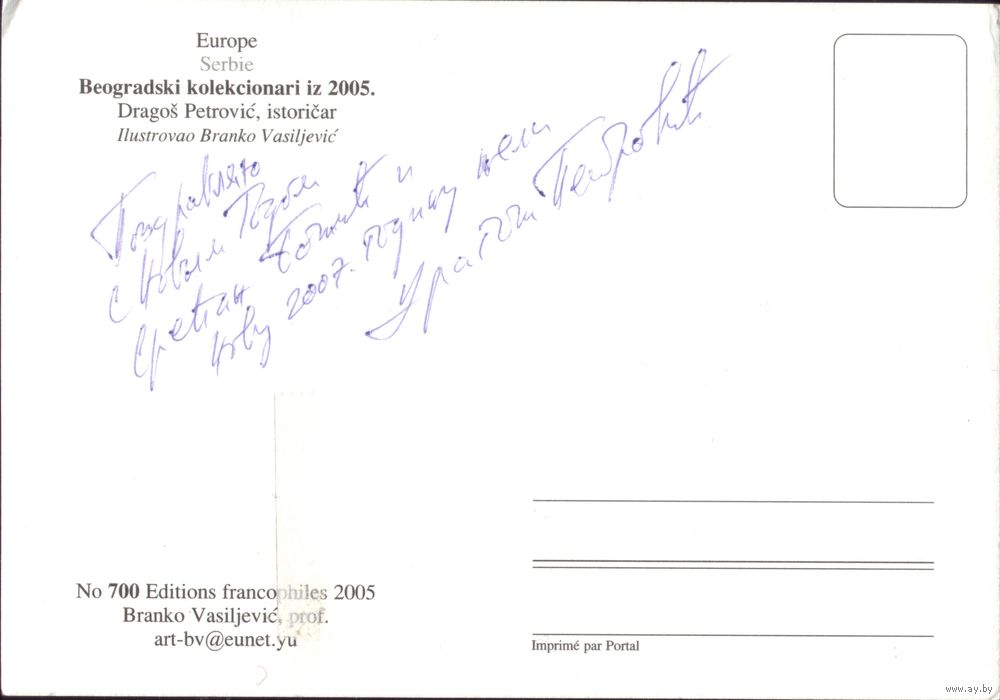 Europe
Serbie
Beogradski kolekcionari iz 2005.
Dragoš Petrović, istoričar
Ilustrovao Branko Vasiljević
Поздравляю
с Новым Годом
Срећан Божић и
нову 2007. годину жели
Драгош Петровић
No 700 Editions francophiles 2005
Branko Vasiljević, prof.
art-bv@eunet.yu
Imprimé par Portal
www.ay.by